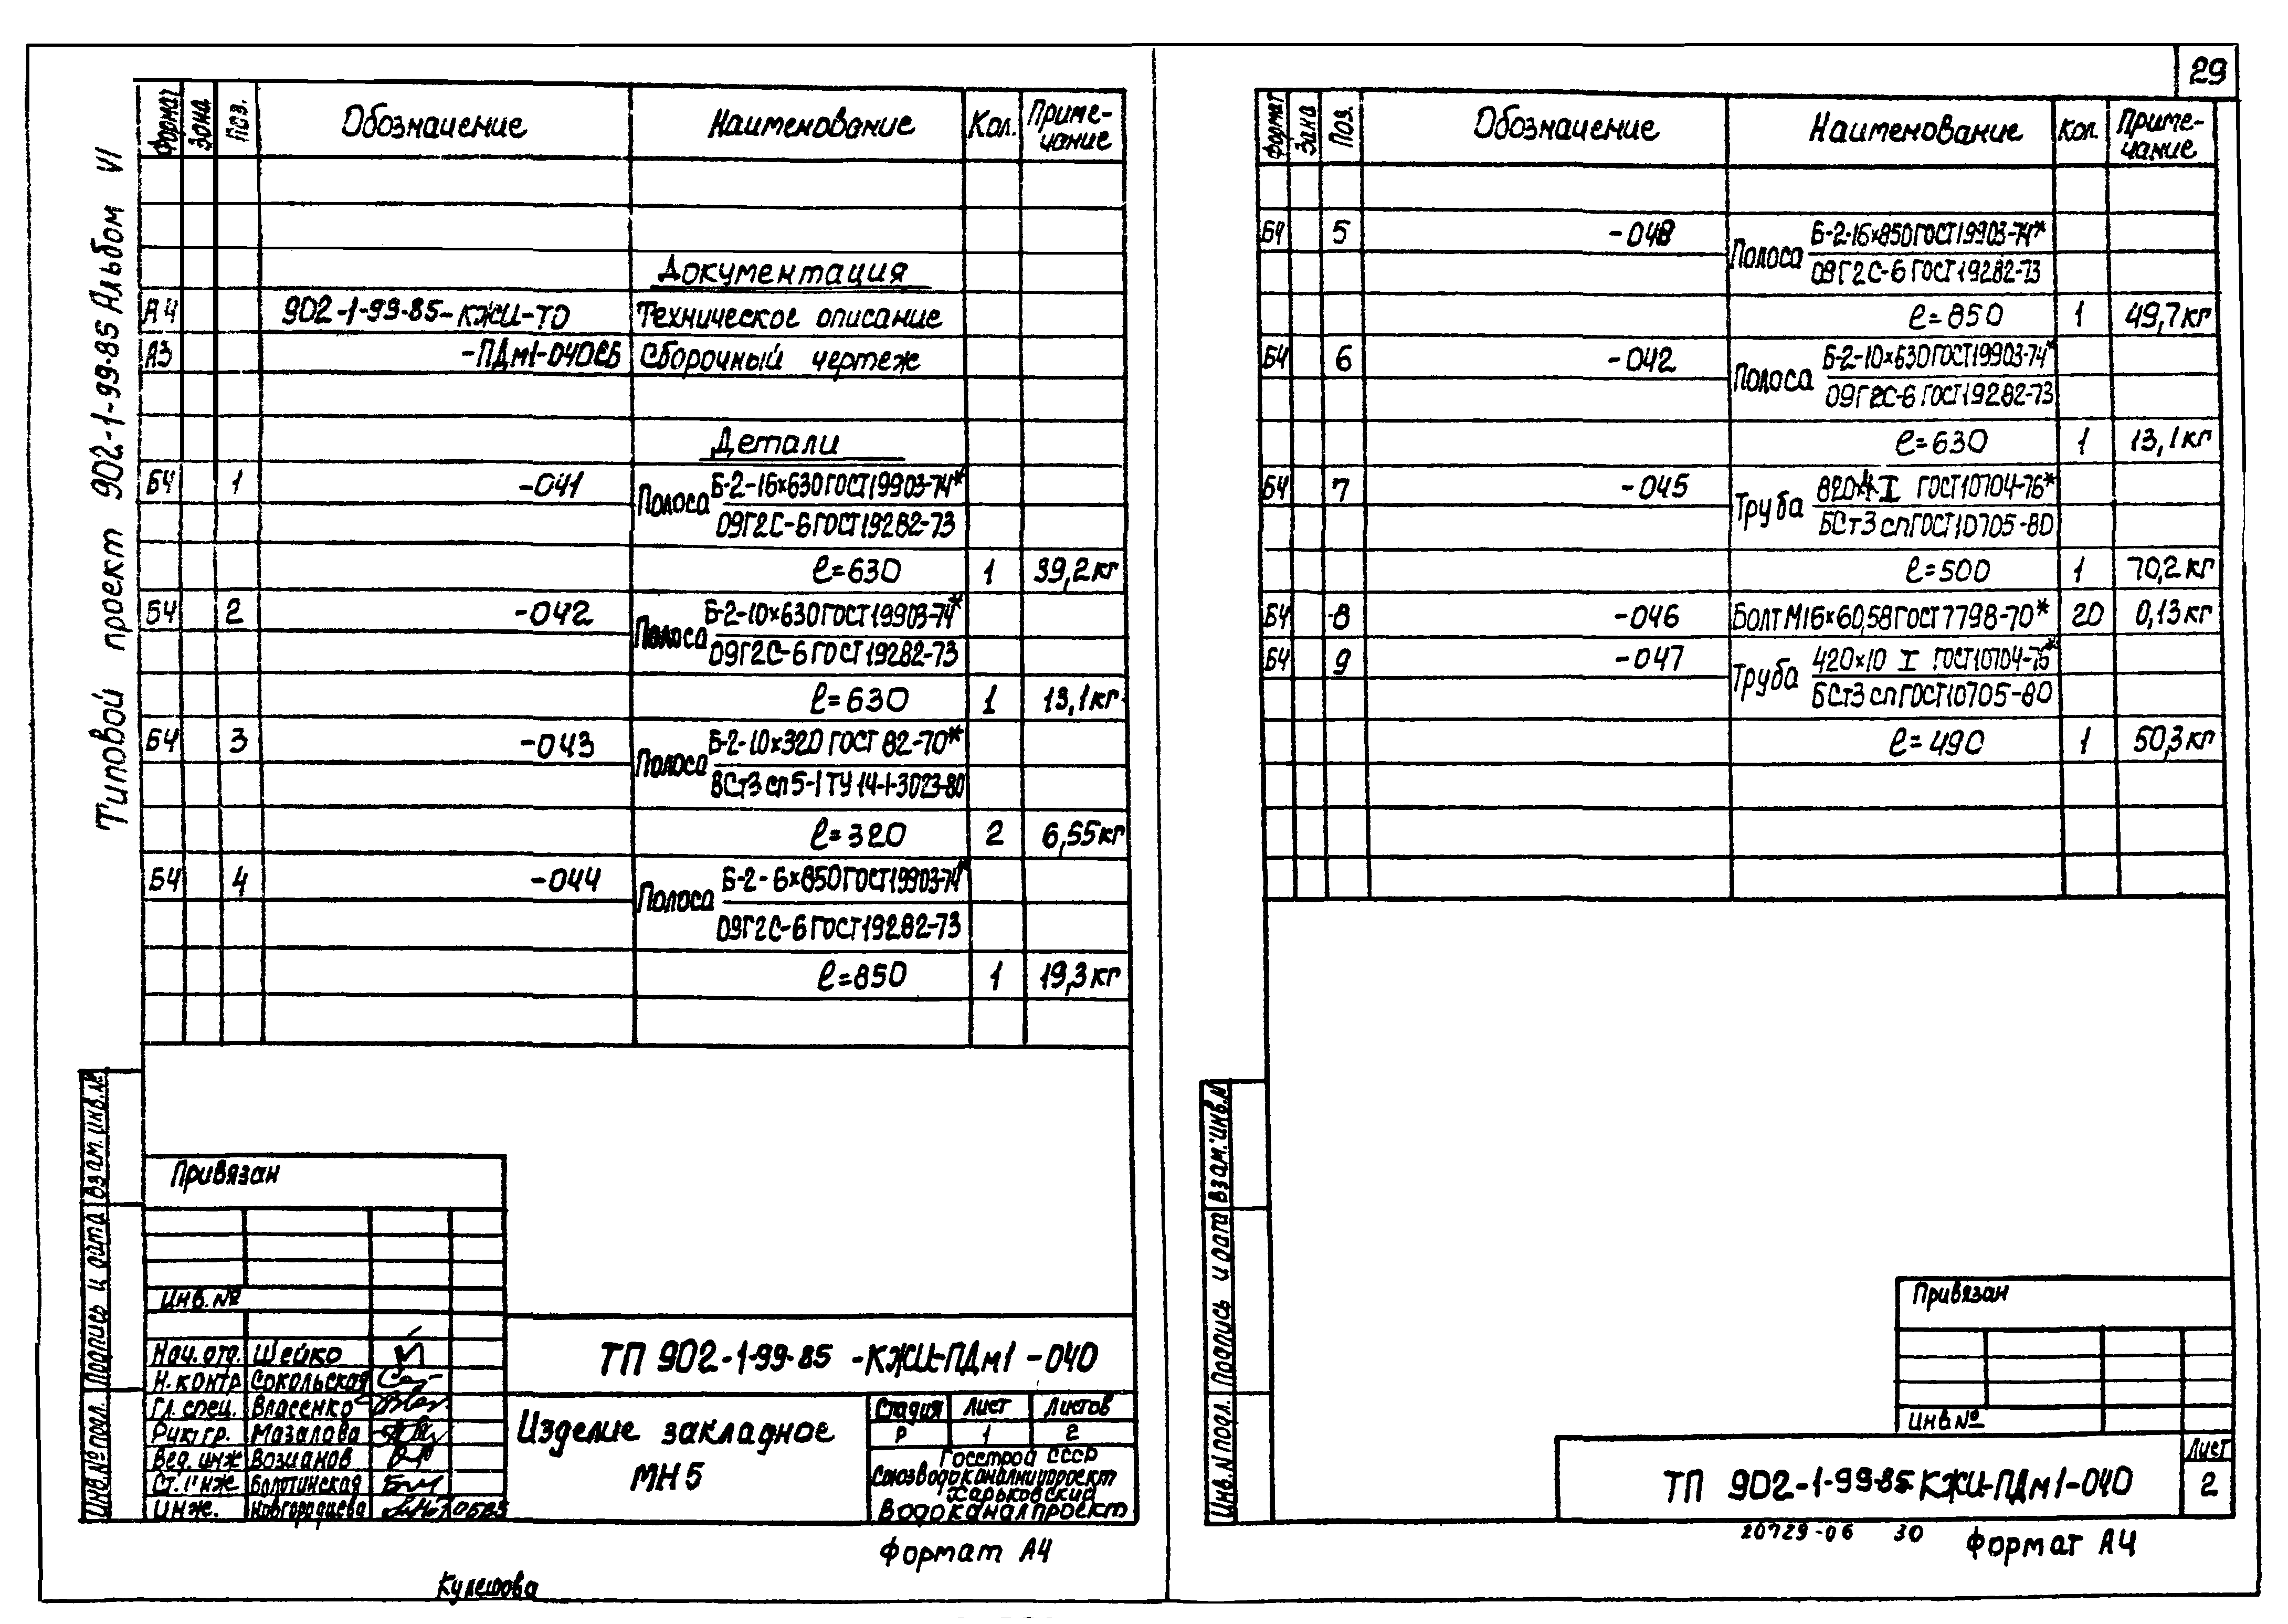 29
Типовой проект 902-1-99-85 Альбом VI
Формат Зона Поз. Обозначение Наименование Кол. Примечание
Документация
А4 902-1-99-85-КЖИ-ТО Техническое описание
А3 -ПДм1-040СБ Сборочный чертеж
Детали
Б4 1 -041 Полоса Б-2-16×630 ГОСТ19903-74*
09Г2С-6 ГОСТ19282-73
ℓ=630 1 39,2кг
Б4 2 -042 Полоса Б-2-10×630 ГОСТ19903-74*
09Г2С-6 ГОСТ19282-73
ℓ=630 1 13,1кг
Б4 3 -043 Полоса Б-2-10×320 ГОСТ 82-70*
ВСт3 сп5-1 ТУ 14-1-3023-80
ℓ=320 2 6,55кг
Б4 4 -044 Полоса Б-2-6×850 ГОСТ19903-74*
09Г2С-6 ГОСТ19282-73
ℓ=850 1 19,3кг
Взам. инв.№
Подпись и дата
Инв.№ подл.
Привязан
Инв.№
Нач. отд. Шейко
Н.контр Сокольская
Гл. спец. Власенко
Рук гр. Мазалова
Вед. инж Возианов
Ст. инж Болотинская
Инж. Новгородцева
ТП 902-1-99-85 -КЖИ-ПДм1-040
Изделие закладное
МН5
Стадия Лист Листов
Р 1 2
Госстрой СССР
Союзводоканалниипроект
Харьковский
Водоканалпроект
Формат А4
Кулешова
Формат Зона Поз. Обозначение Наименование Кол. Примечание
Б4 5 -048 Полоса Б-2-16×850 ГОСТ19903-74*
09Г2С-6 ГОСТ19282-73
ℓ=850 1 49,7кг
Б4 6 -042 Полоса Б-2-10×630 ГОСТ19903-74*
09Г2С-6 ГОСТ19282-73
ℓ=630 1 13,1кг
Б4 7 -045 Труба 820×4 I ГОСТ10704-76*
БСт3 сп ГОСТ10705-80
ℓ=500 1 70,2кг
Б4 8 -046 Болт М16×60,58 ГОСТ 7798-70* 20 0,13кг
Б4 9 -047 Труба 420×10 I ГОСТ10704-76*
БСт3 сп ГОСТ10705-80
ℓ=490 1 50,3кг
Взам. инв.№
Подпись и дата
Инв.№ подл.
Привязан
Инв №
ТП 902-1-99-85 КЖИ-ПДм1-040
Лист
2
20729-06 30
Формат А4